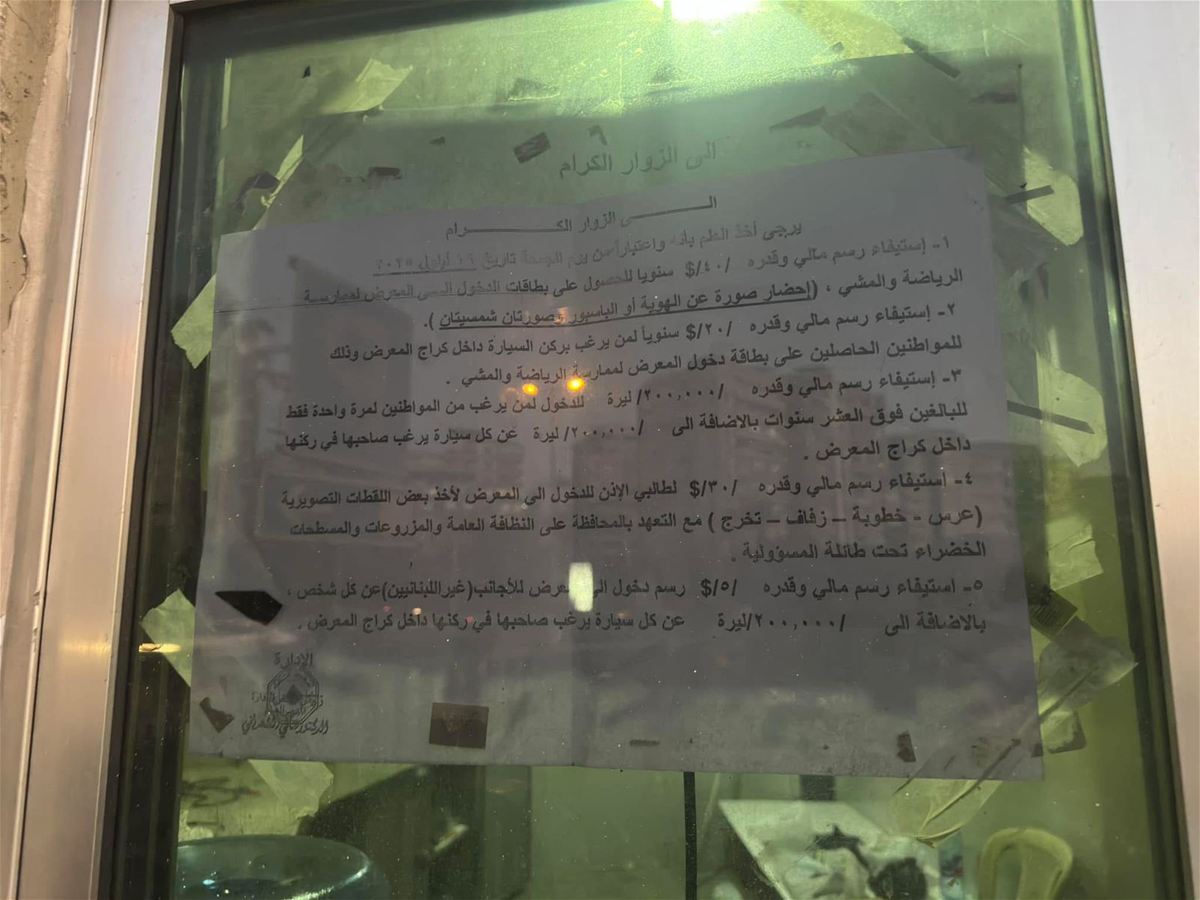 الى الزوار الكرام
الـــــــى الزوار الكـــــــرام
يرجى أخذ العلم بأنه واعتباراً من يوم الجمعة تاريخ ١٩ أيلول ٢٠٢٥
١- إستيفاء رسم مالي وقدره /٤٠/$ سنويا للحصول على بطاقات الدخول الـــى المعرض لممارســـة
الرياضة والمشي ، (إحضار صورة عن الهوية أو الباسبور وصورتان شمسيتان ).
٢- إستيفاء رسم مالي وقدره /٢٠/$ سنوياً لمن يرغب بركن السيارة داخل كراج المعرض وذلك
للمواطنين الحاصلين على بطاقة دخول المعرض لممارسة الرياضة والمشي .
٣- إستيفاء رسم مالي وقدره /٢٠٠,٠٠٠/ ليرة للدخول لمن يرغب من المواطنين لمرة واحدة فقط
للبالغين فوق العشر سنوات بالاضافة الى /٢٠٠,٠٠٠/ ليرة عن كل سيارة يرغب صاحبها في ركنها
داخل كراج المعرض .
٤- أستيفاء رسم مالي وقدره /٣٠/$ لطالبي الإذن للدخول الى المعرض لأخذ بعض اللقطات التصويرية
(عرس - خطوبة – زفاف – تخرج ) مع التعهد بالمحافظة على النظافة العامة والمزروعات والمسطحات
الخضراء تحت طائلة المسؤولية .
٥- استيفاء رسم مالي وقدره /٥/$ رسم دخول الى المعرض للأجانب(غيراللبنانيين)عن كل شخص ،
بالاضافة الى /٢٠٠,٠٠٠/ليرة عن كل سيارة يرغب صاحبها في ركنها داخل كراج المعرض .
الإدارة